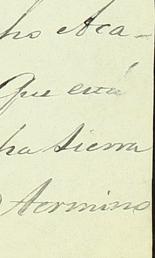 ho Aca-
Que está
ha tierra
termino